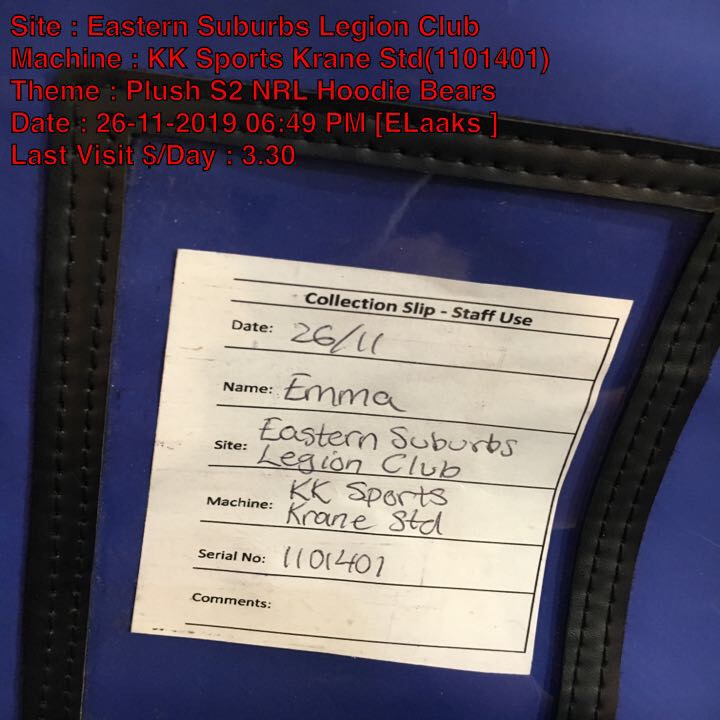 Site : Eastern Suburbs Legion Club
Machine : KK Sports Krane Std(1101401)
Theme : Plush S2 NRL Hoodie Bears
Date : 26-11-2019 06:49 PM [ELaaks ]
Last Visit $/Day : 3.30
Collection Slip - Staff Use
Date: 26/11
Name: Emma
Site: Eastern Suburbs
Legion Club
Machine: KK Sports
Krane Std
Serial No: 1101401
Comments: